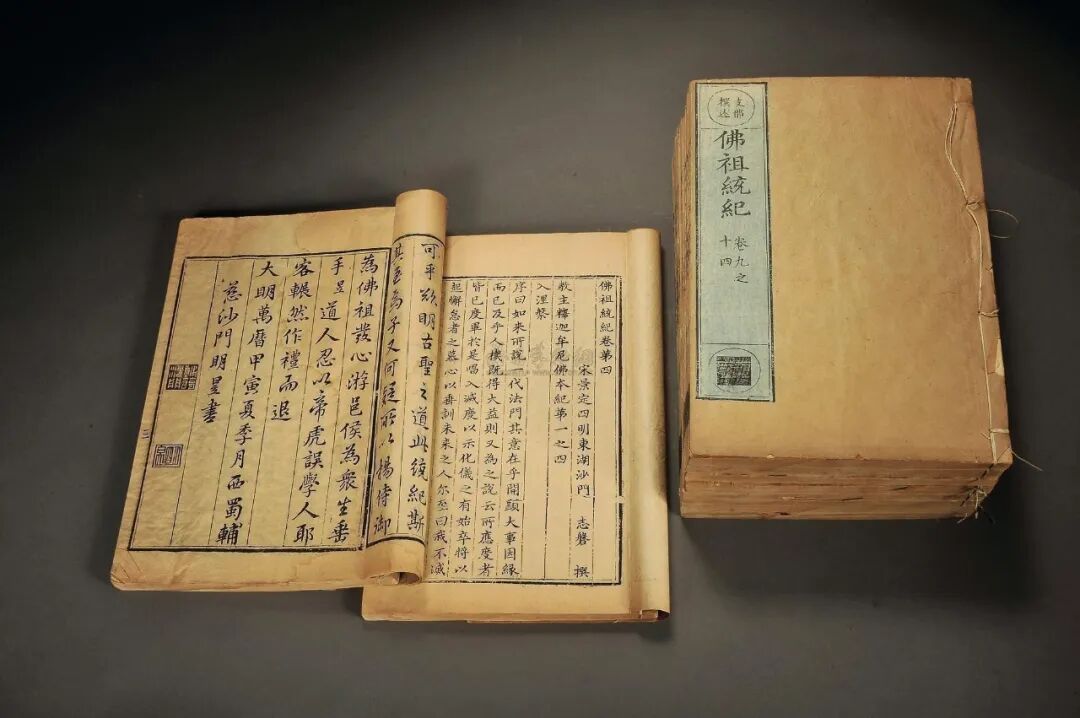 支那
撰述
佛祖統紀
卷九之
十四
佛祖統紀卷第四
宋景定四明東湖沙門 志磐 撰
教主釋迦牟尼佛本紀第一之四
入涅槃
序曰如來所說一代法門其意在乎開顯大事因緣
而已及乎人機既得大益則又為之說云所應度者
皆已度畢於是唱入滅度以示化儀之有始卒將以
起懈怠者之慕心以垂訓未來之人尔至曰我不滅
可乎欲明古聖之道此統紀斯
其至為子又何疑所以楊侍御
為佛祖發心游邑侯為眾生垂
手昱道人忍以帝虎誤學人耶
客輾然作禮而退
大明萬曆甲寅夏季月西蜀輔
慈沙門明昱書
三